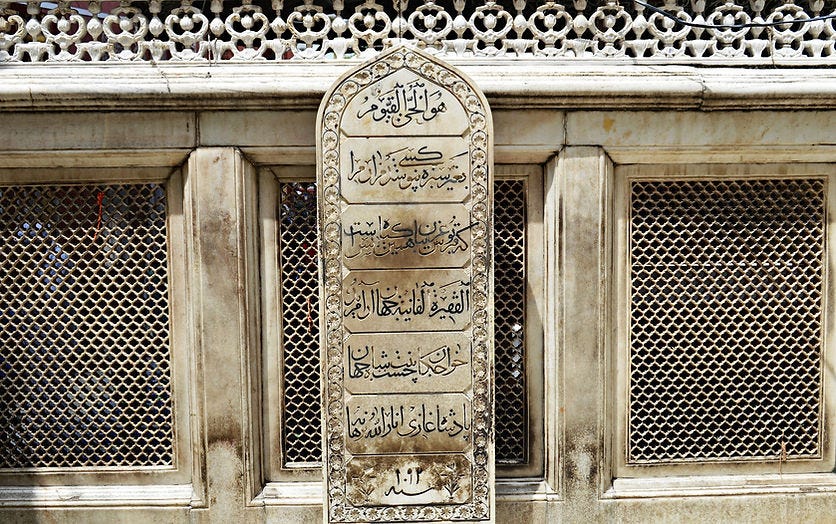 هو الحی القیوم
بغیر سبزه نپوشد کسی مزار مرا
که قبر پوش غریبان همین گیاه بس است
الفقیرة الفانیة جهان آرا مرید
خواجگان چشت بنت شاهجهان
پادشاه غازی انار الله برهانه
سنه ۱۰۹۲